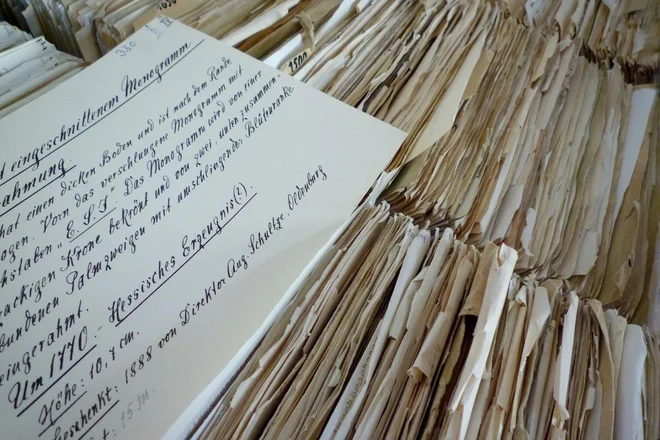 330 IX
eingeschnittenem Monogramm
ahmung.
hat einen dicken Boden und ist nach dem Rande
ogen. Vorn das verschlungene Monogramm mit
chstaben "E.S.S." Das Monogramm wird von einer
ackigen Krone bekrönt und von zwei, unten zusammen-
bundenen Palmzweigen mit umschlingender Blütenranke
eingerahmt.
Um 1770.- Hessisches Erzeugnis(?).
Höhe: 10,7 cm.
Geschenkt: 1888 von Direktor Aug. Schultze, Oldenburg
t: 15 M.
1500